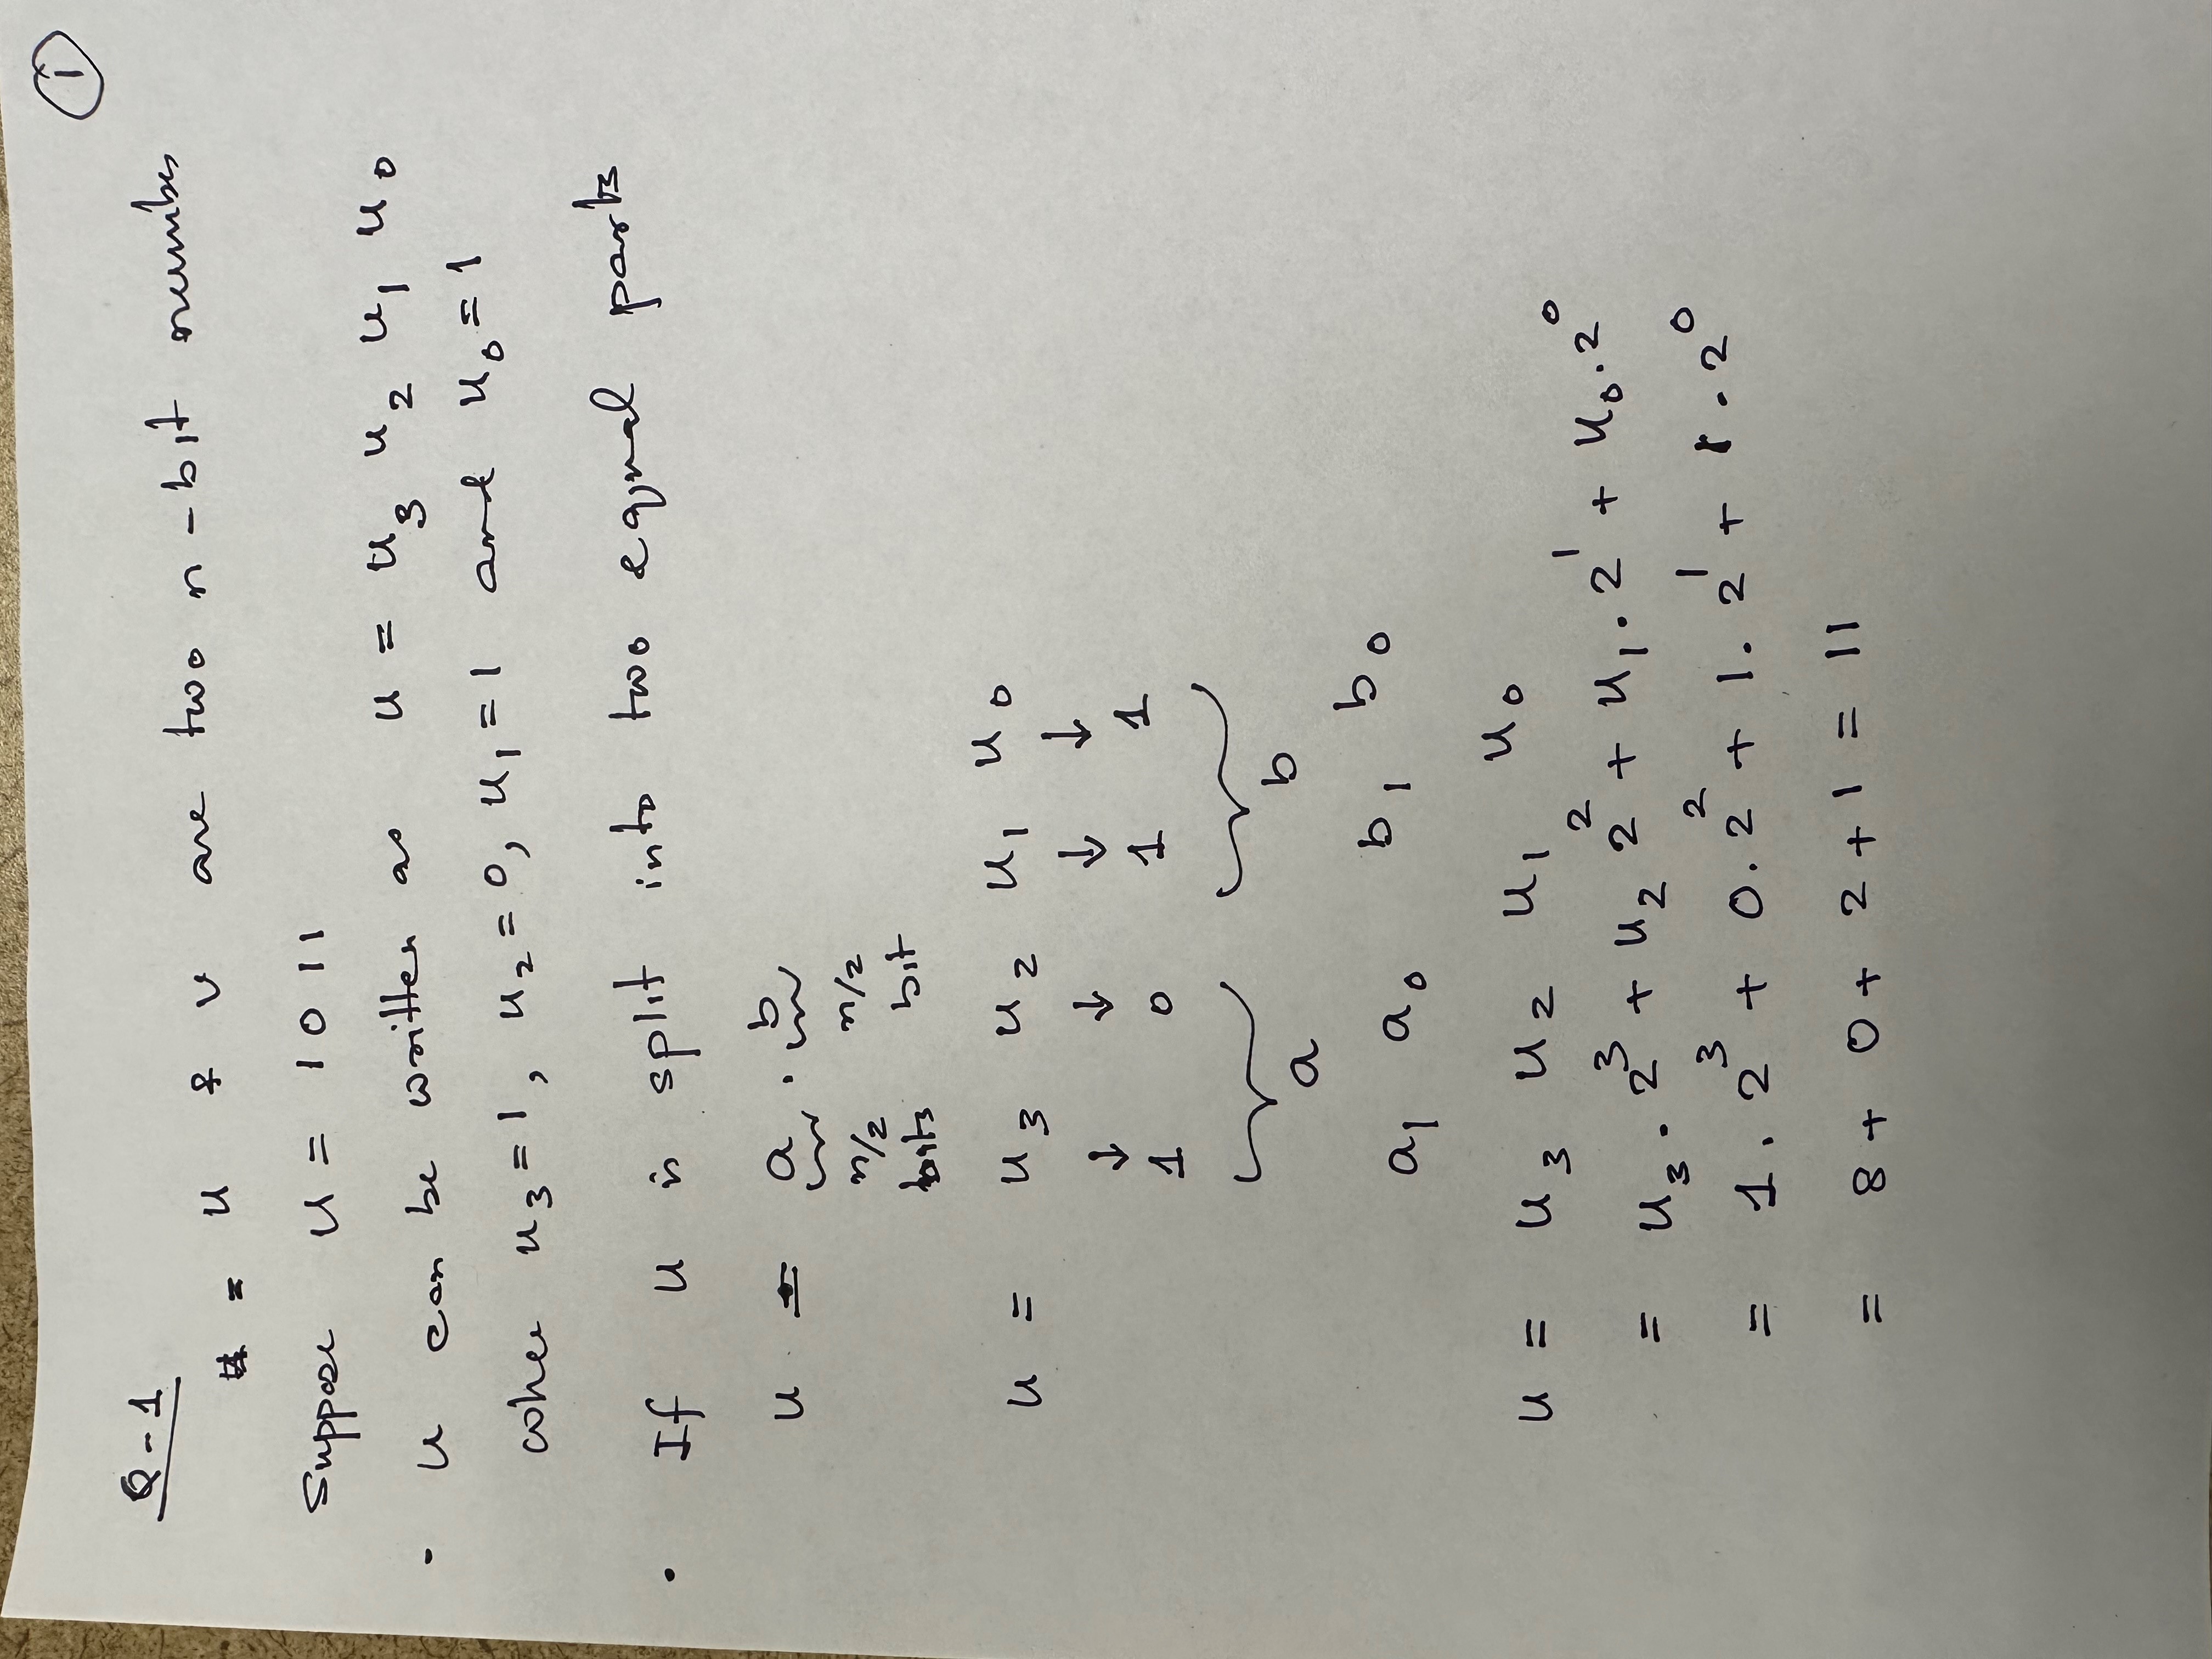 1
Q-1
= u & v are two n-bit number
Suppose u = 1011
· u can be written as u = u₃ u₂ u₁ u₀
where u₃=1, u₂=0, u₁=1 and u₀=1
· If u is split into two equal parts
u = a . b
n/2 n/2
bits bit
u = u₃ u₂ u₁ u₀
↓ ↓ ↓ ↓
1 0 1 1
a b
a₁ a₀ b₁ b₀
u = u₃ u₂ u₁ u₀
= u₃ . 2³ + u₂ 2² + u₁ . 2¹ + u₀ . 2⁰
= 1 . 2³ + 0 . 2² + 1 . 2¹ + 1 . 2⁰
= 8 + 0 + 2 + 1 = 11